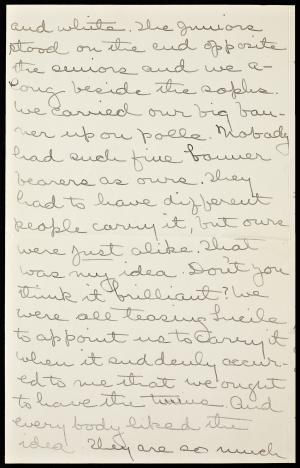 and white. The Juniors
stood on the end opposite
the seniors and we a-
long beside the sophs.
We carried our big ban-
ner up on polls. Nobody
had such fine banner
bearers as ours. They
had to have different
people carry it, but ours
were just alike. That
was my idea. Don't you
think it brilliant? We
were all teasing Lucile
to appoint us to carry it
when it suddenly occur-
ed to me that we ought
to have the twins. And
every body liked the
idea. They are so much